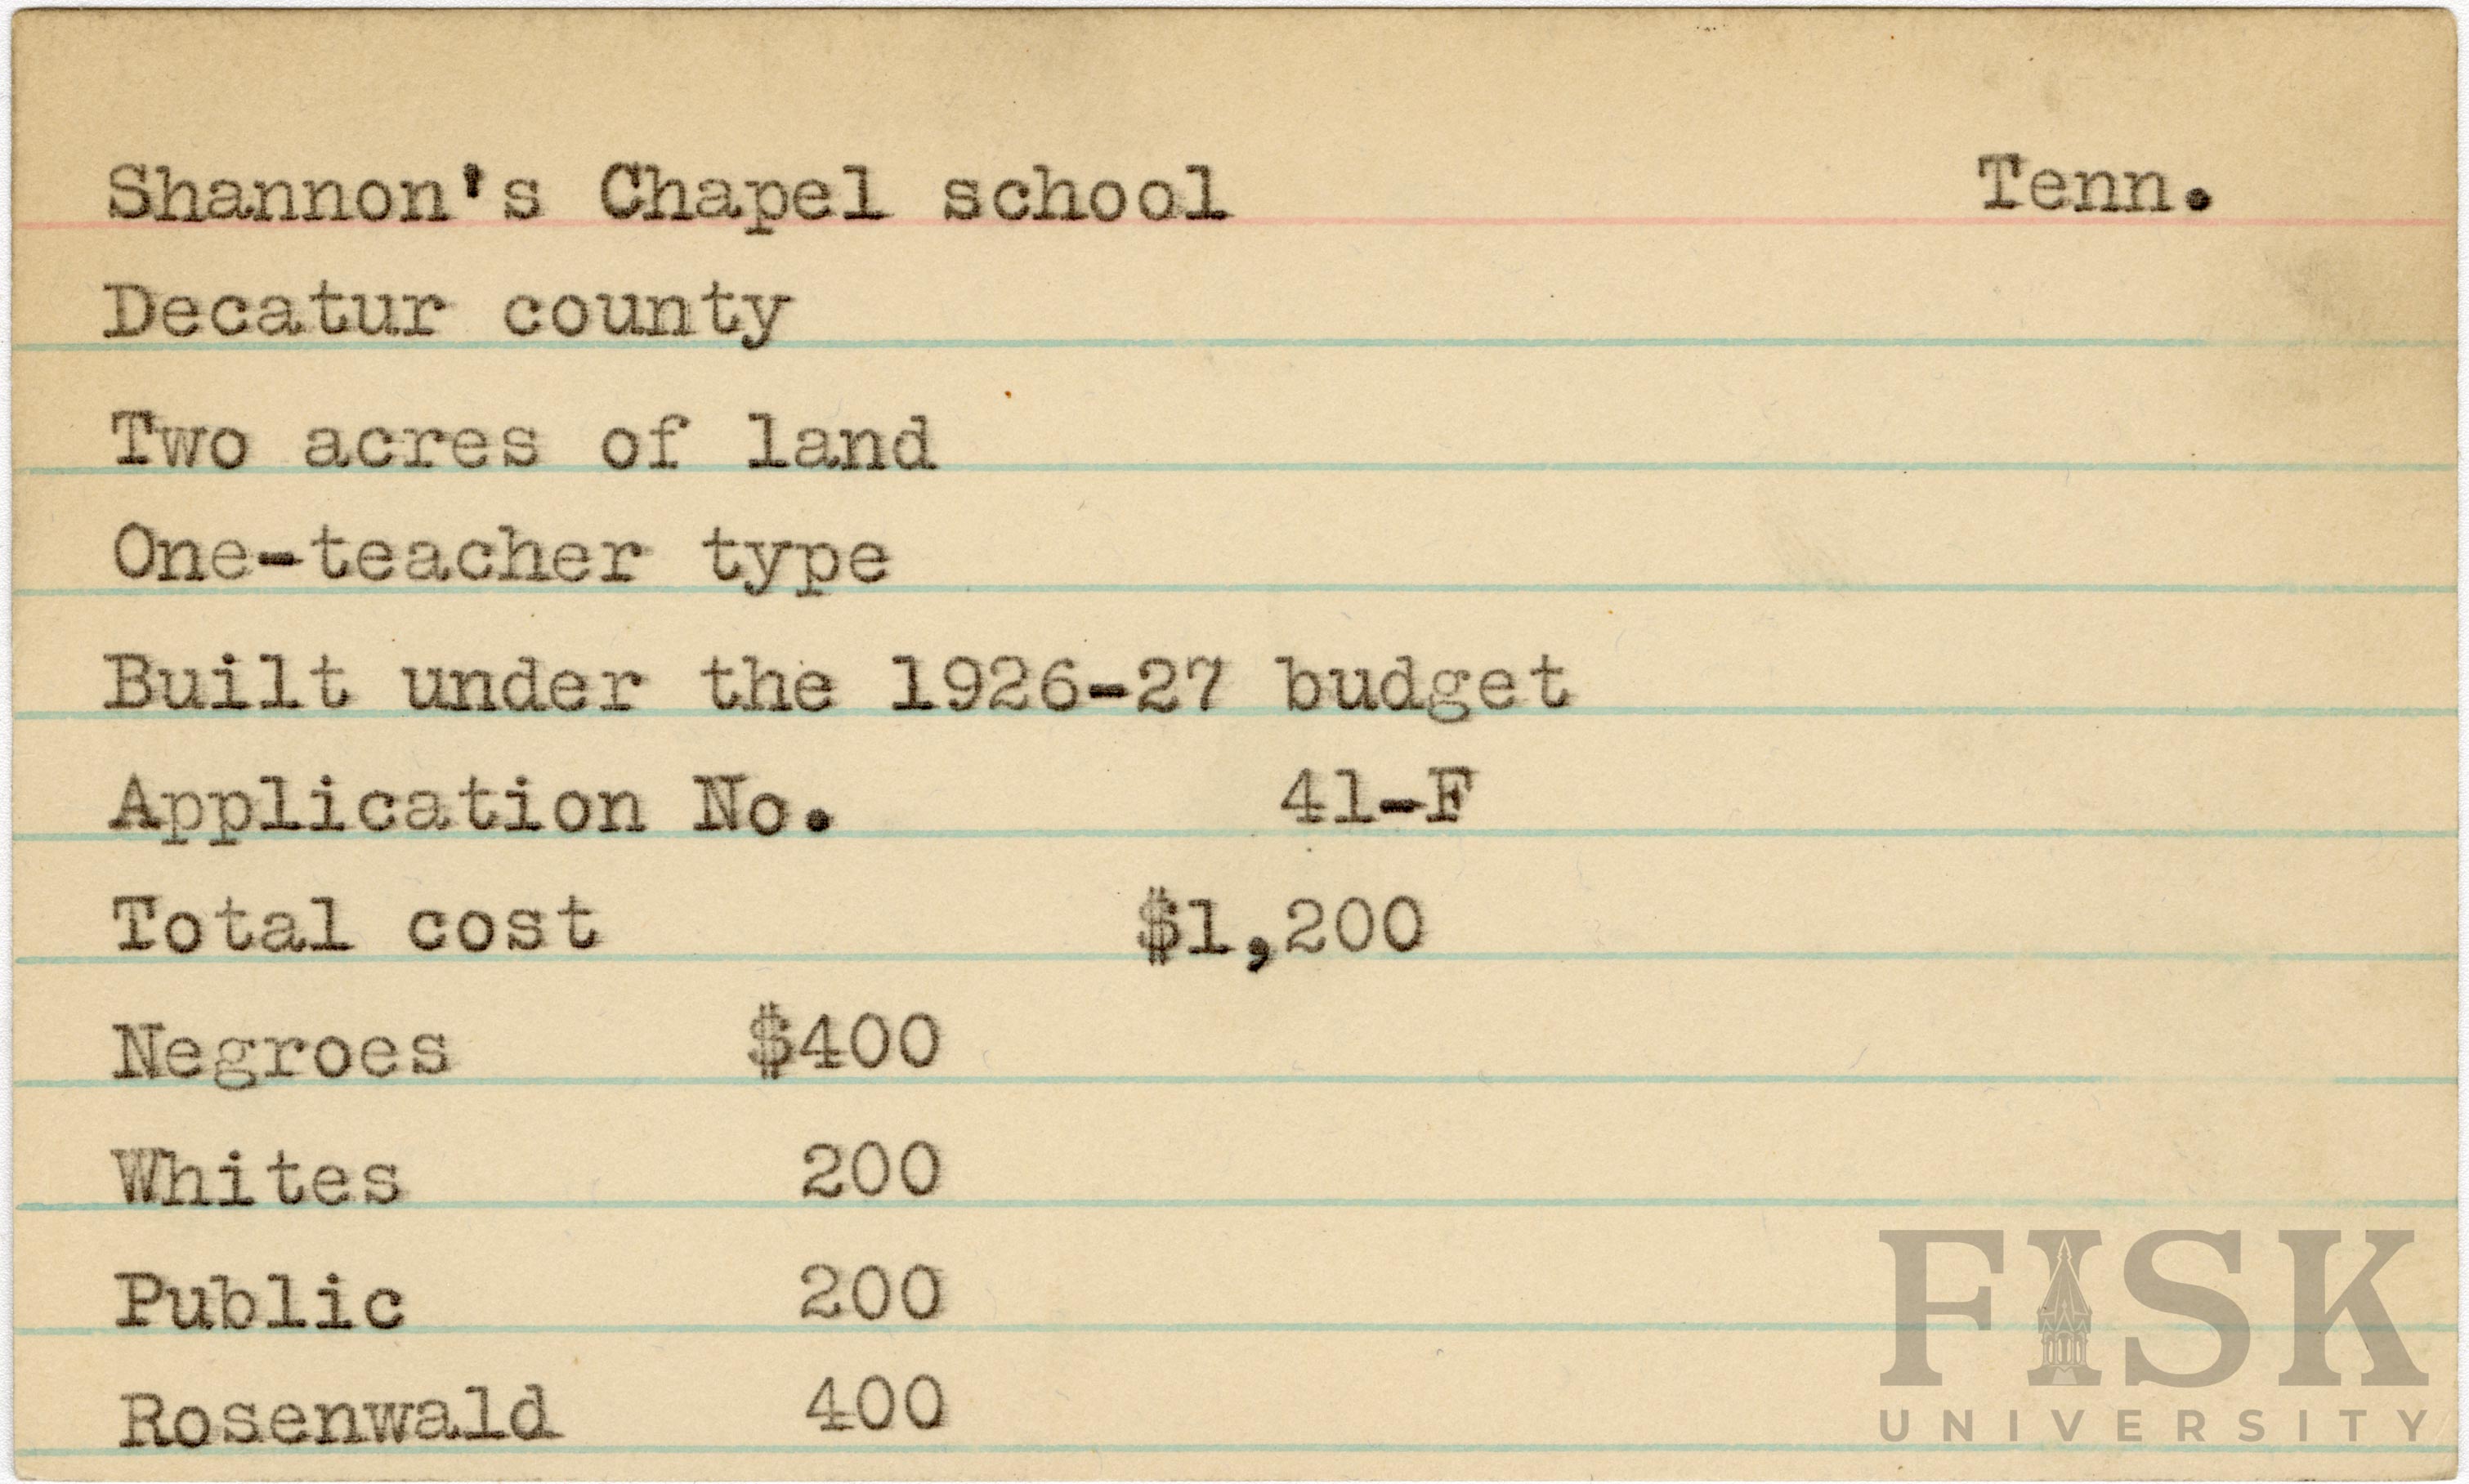 Shannon's Chapel school Tenn.
Decatur county
Two acres of land
One-teacher type
Built under the 1926-27 budget
Application No. 41-F
Total cost $1,200
Negroes $400
Whites 200
Public 200
Rosenwald 400
FISK
UNIVERSITY